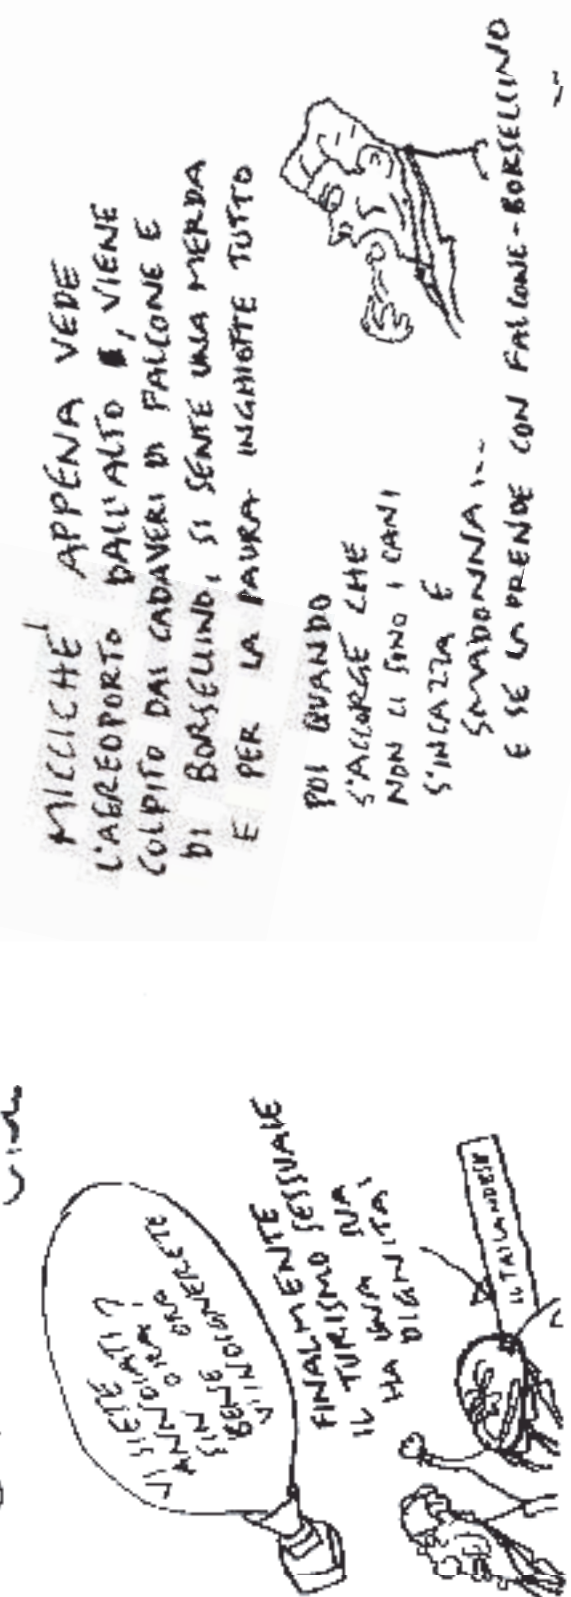 MICCICHÈ APPENA VEDE
L'AEREOPORTO DALL'ALTO È, VIENE
COLPITO DAI CADAVERI DI FALCONE E
DI BORSELLINO, SI SENTE UNA MERDA
E PER LA PAURA INGHIOTTE TUTTO
POI QUANDO
S'ACCORGE CHE
NON CI SONO I CANI
S'INCAZZA E
SMADONNA...
E SE LA PRENDE CON FALCONE-BORSELLINO
VI SIETE
ANNOIATI?
SIN ORA!
BENE ORA
VI INDIGNERETE
FINALMENTE
IL TURISMO SESSUALE
HA UNA SUA
DIGNITA'
IL TAILANDESE